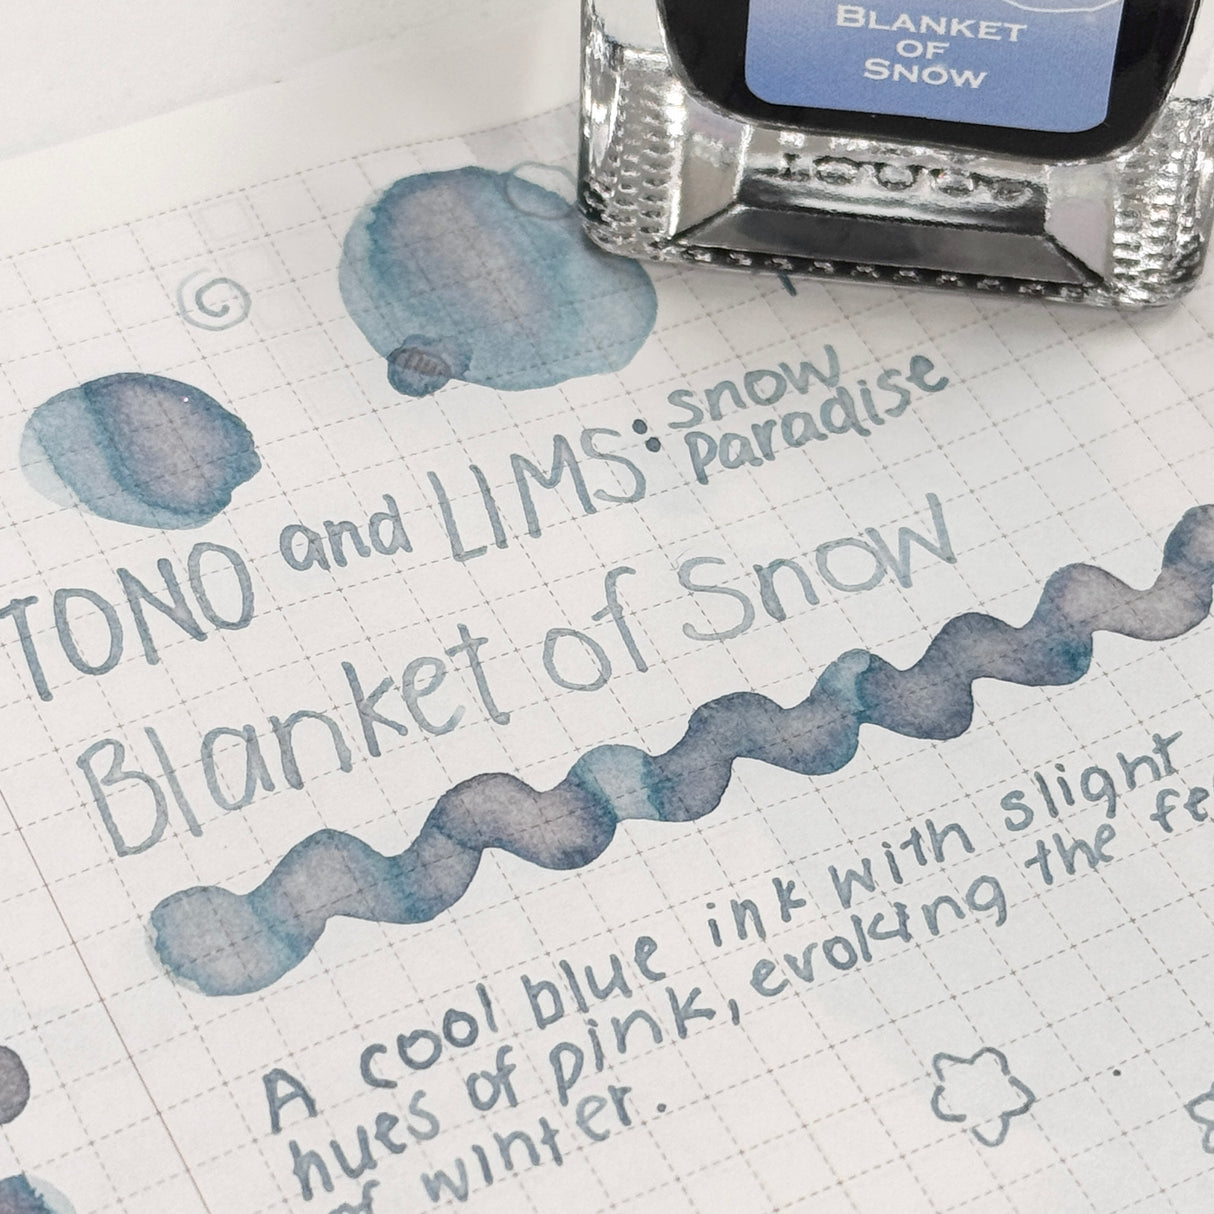 BLANKET
OF
SNOW
TONO and LIMS: snow
paradise
Blanket of Snow
A cool blue ink with slight
hues of pink, evoking the
of winter.